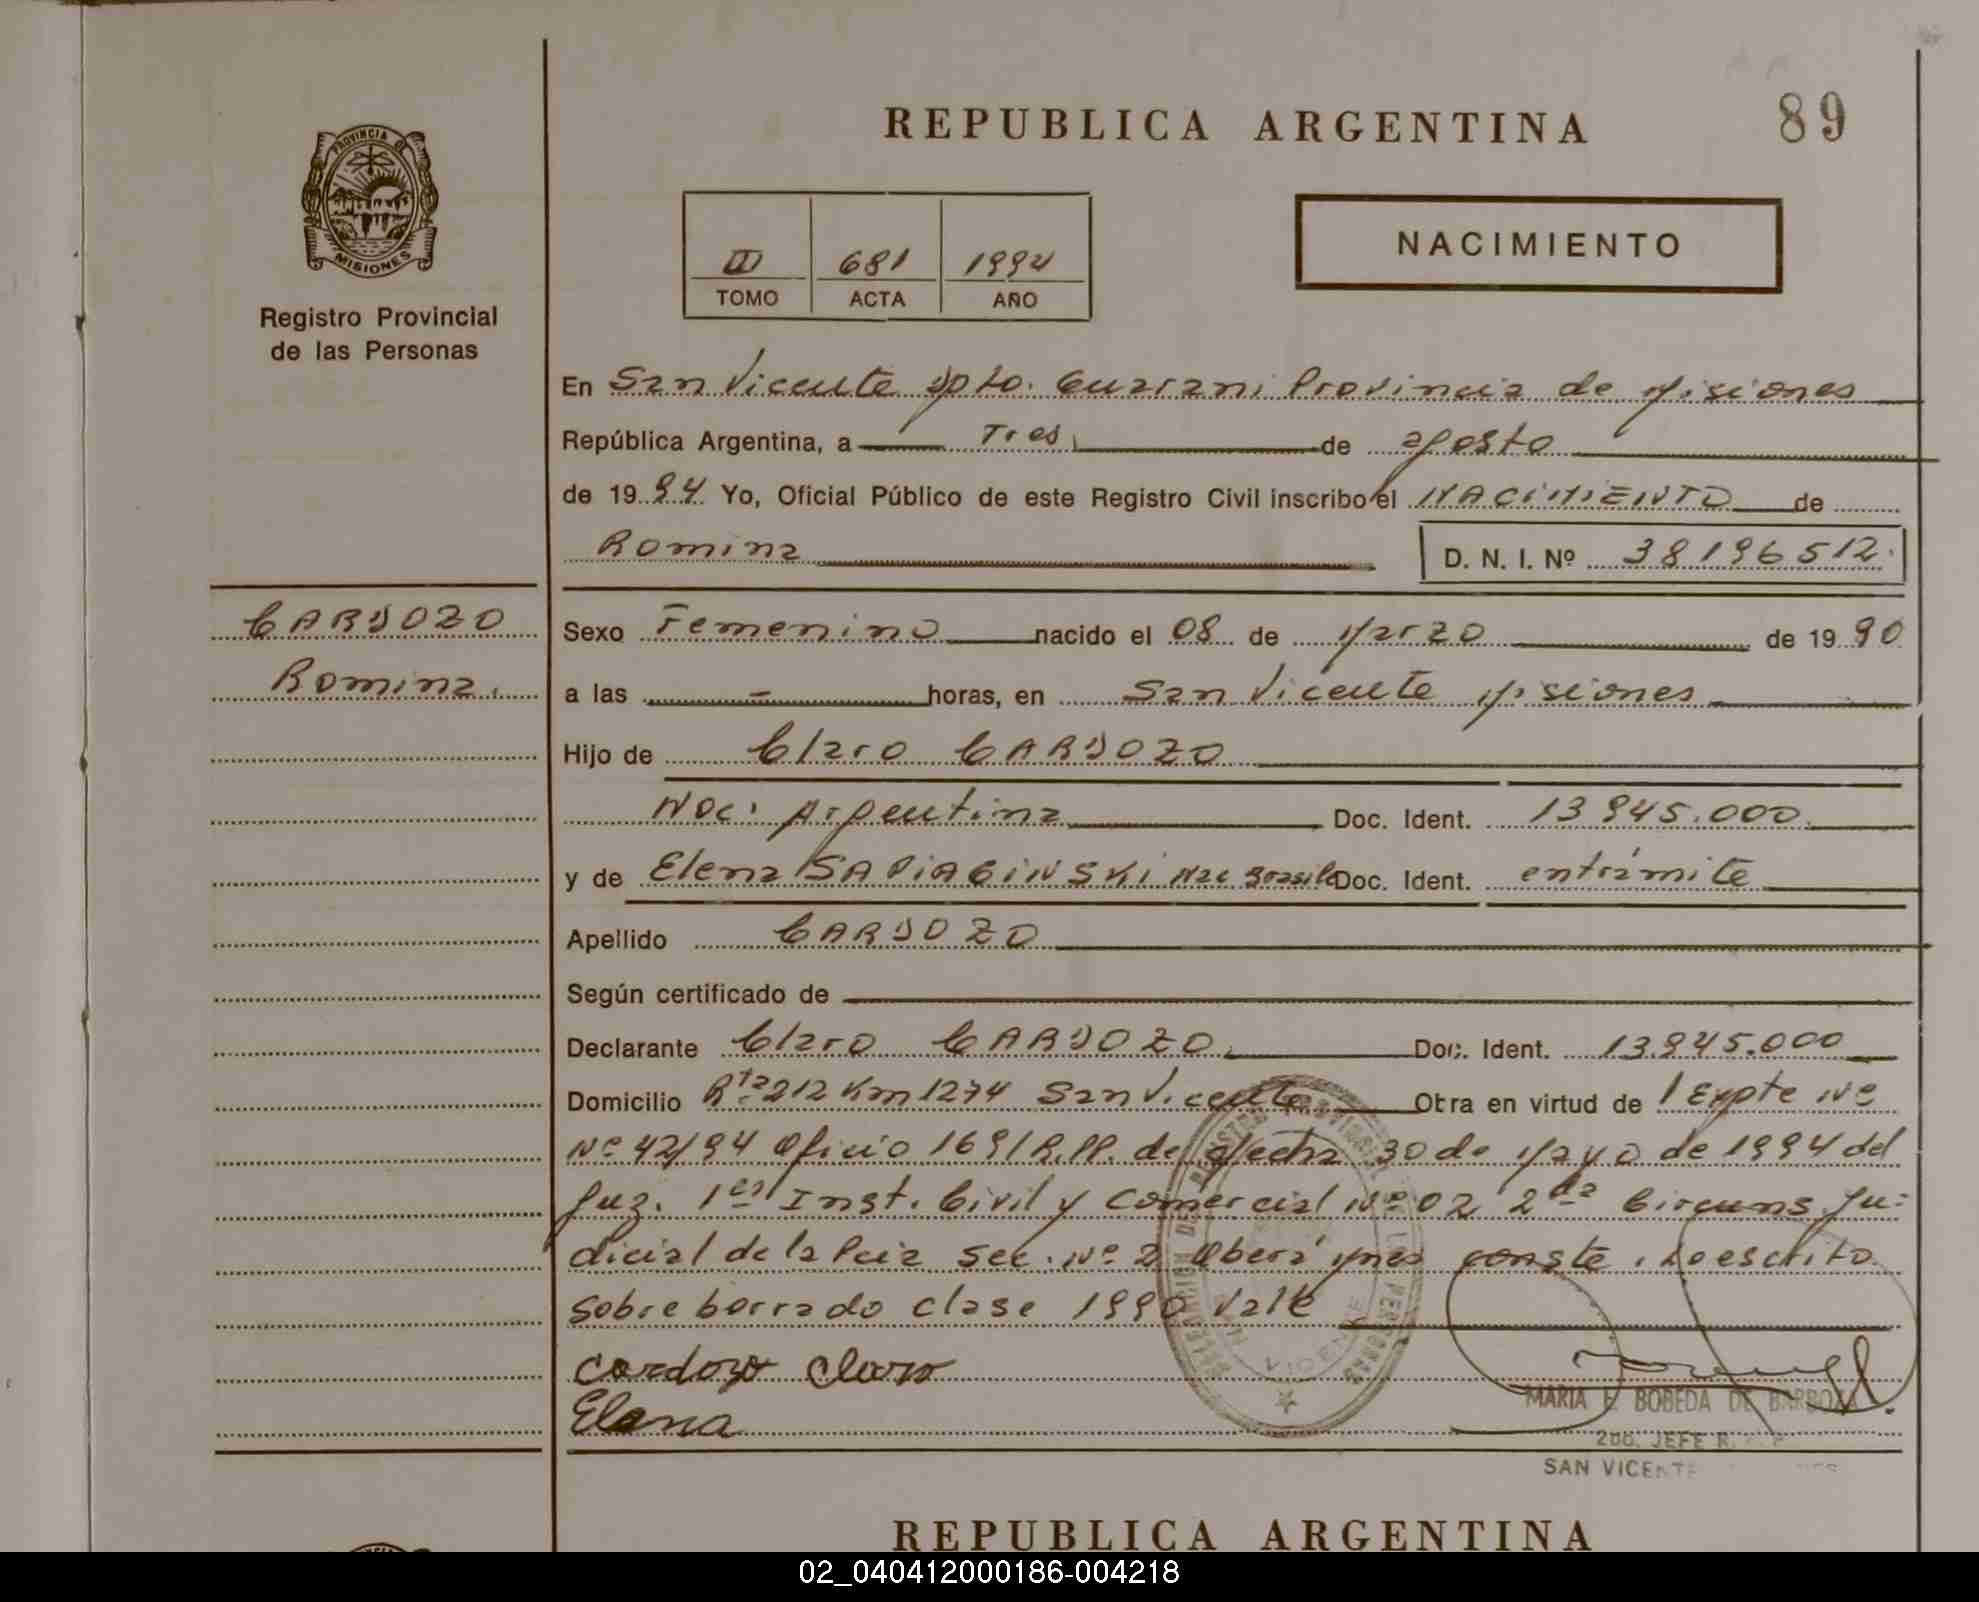 REPUBLICA ARGENTINA
89
PROVINCIA DE
MISIONES
Registro Provincial
de las Personas
NACIMIENTO
II 681 1994
TOMO ACTA AÑO
En San Vicente Dpto. Guarani Provincia de Misiones
República Argentina, a Tres de agosto
de 1994 Yo, Oficial Público de este Registro Civil inscribo el NACIMIENTO de
Romina D. N. I. Nº 38196512.
CARDOZO
Romina.
Sexo Femenino nacido el 08 de Marzo de 1990
a las - horas, en San Vicente Misiones
Hijo de Claro CARDOZO
Nac: Argentina Doc. Ident. 13945.000
y de Elena Nac Brasil Doc. Ident. entrámite
Apellido CARDOZO
Según certificado de
Declarante Claro CARDOZO Doc. Ident. 13.945.000
Domicilio Rta 212 Km 1274 San Vicente Otra en virtud de 1 Expte Nº
Nº 42/94 Oficio 169/R.PP. de fecha 30 de Mayo de 1994 del
Juz. 1era Inst. Civil y Comercial Nº 02 2da Circuns. Ju-
dicial de la Pcia Sec. Nº 2 Oberá Mnes conste. Lo escrito
sobre borrado clase 1990 Vale
Cardozo Claro
Elena
MARIA E. BOBEDA DE BARBOZA
JEFE
SAN VICENTE
REPUBLICA ARGENTINA
02_040412000186-004218